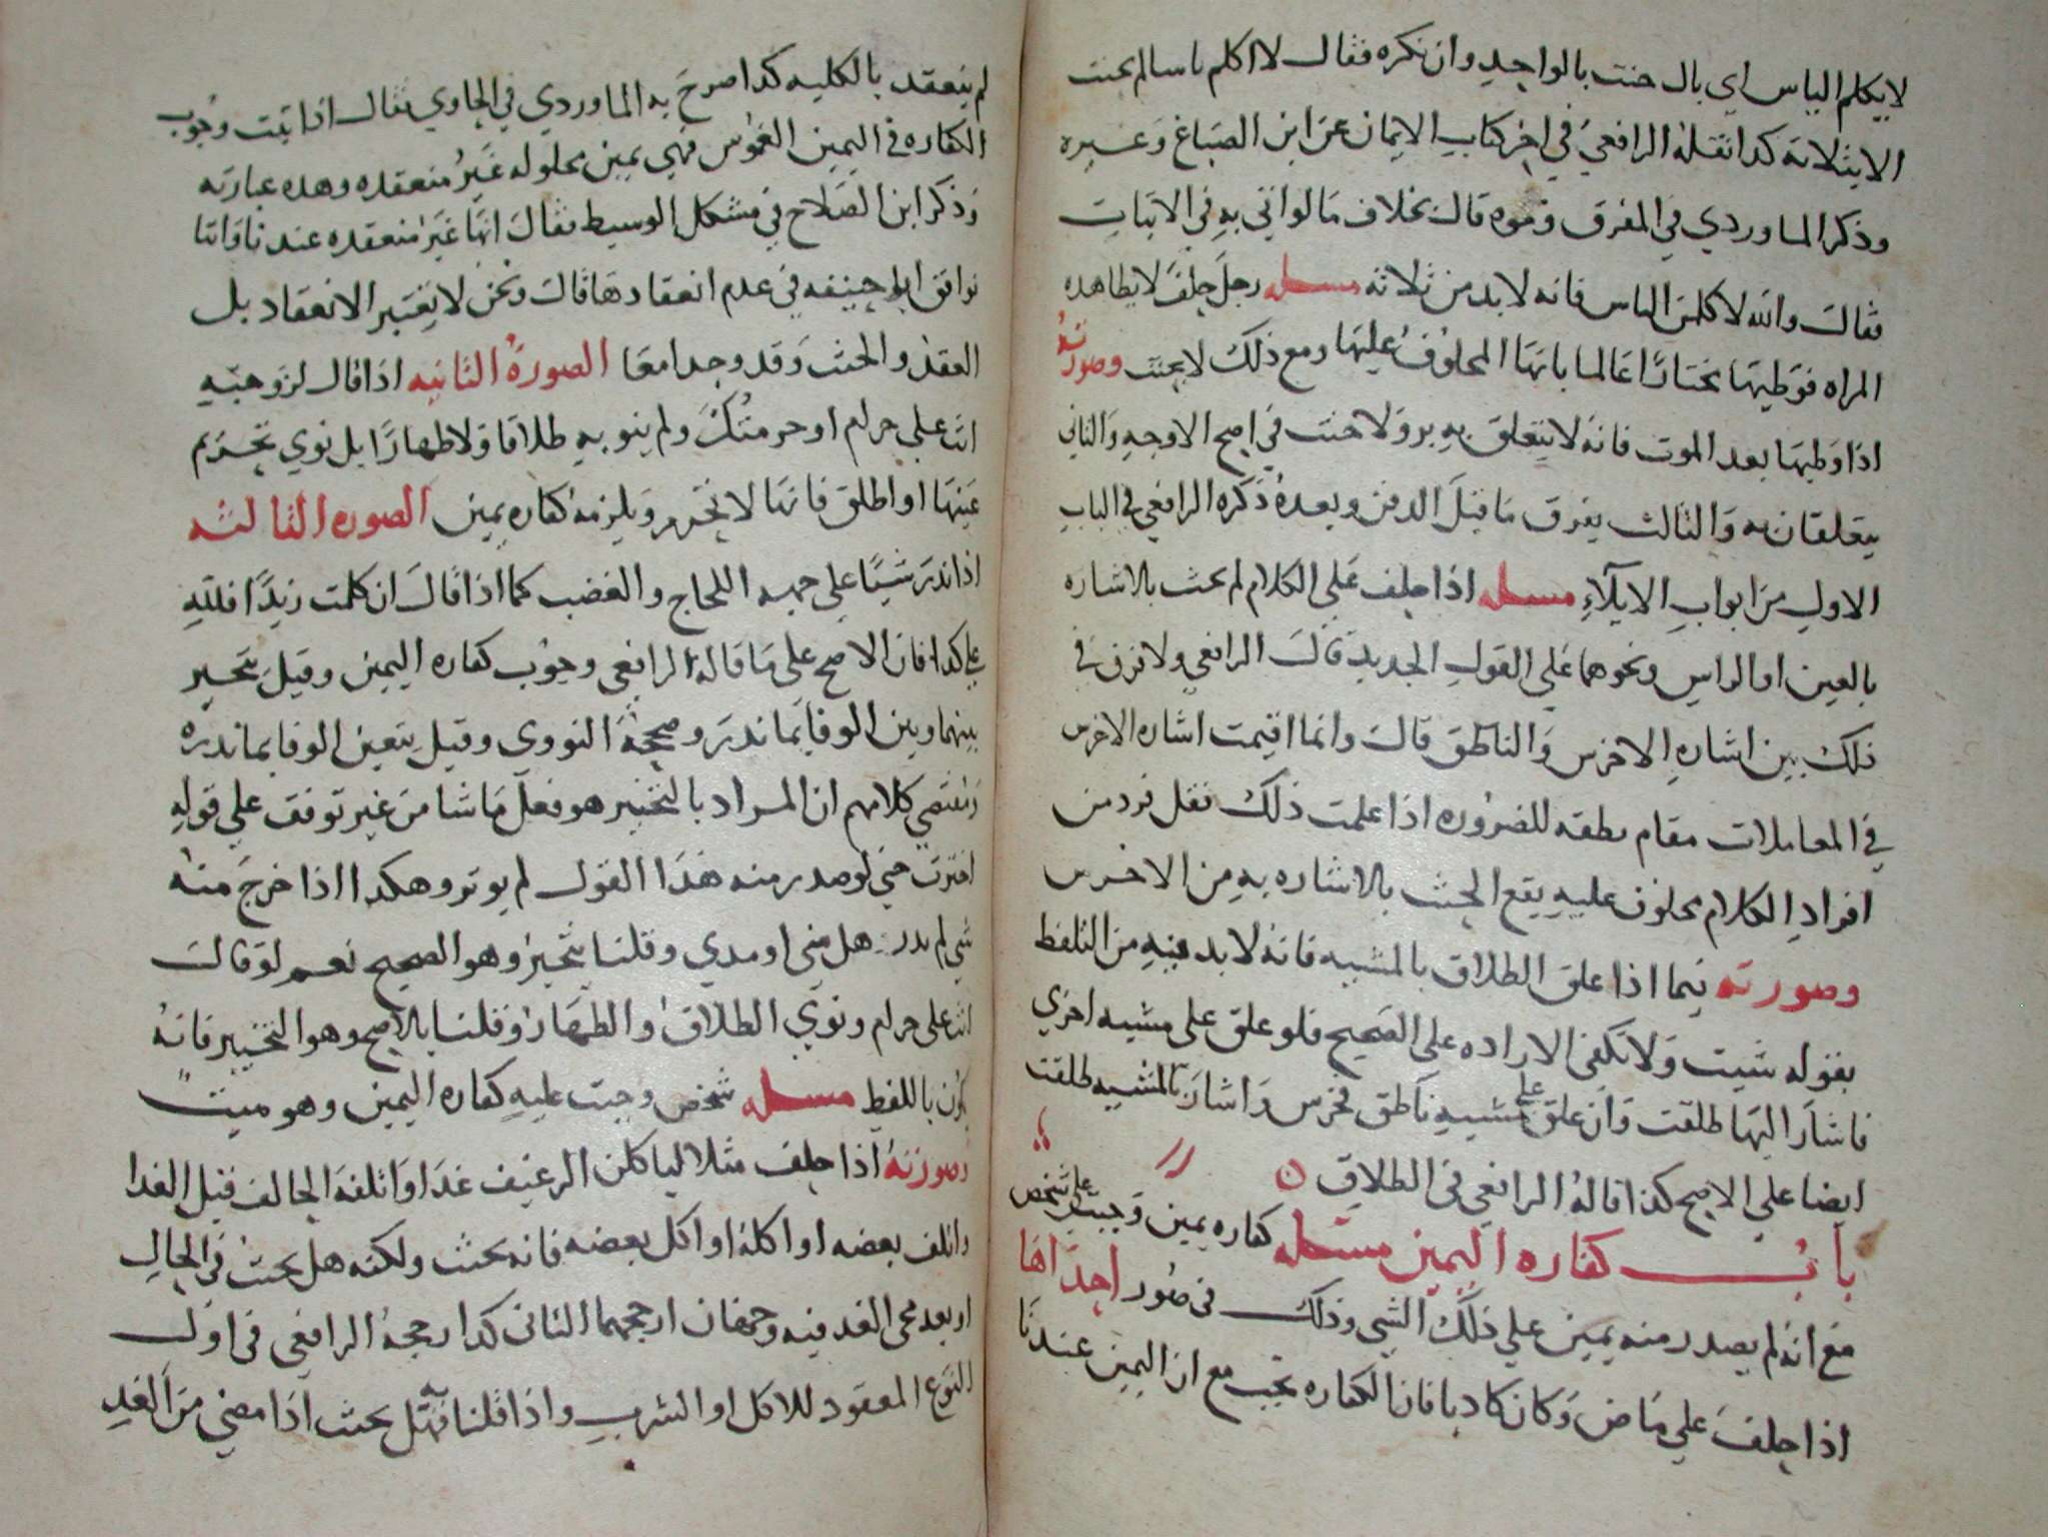 لا يكلم الناس اي بال حنث بالواحد وان نكره فقال لا اكلم ناسا لم يحنث
الا بثلاثة كدا نقله الرافعي في اخر كتاب الايمان عن ابن الصباغ وغيره
وذكر الماوردي في المفرق ونحوه قال بخلاف ما لو اتي به في الاثبات
فقال والله لا كلمن الناس فانه لا بد من ثلاثه مسله رجل حلف لا يطا هده
المراه فوطيها مختارًا عالما بانها المحلوف عليها ومع ذلك لا يحنث وصورته
اذا وطيها بعد الموت فانه لا يتعلق به بر ولا حنث في اصح الاوجه والثاني
يتعلقان به والثالث يفرق ما قبل الدفن وبعده ذكره الرافعي في الباب
الاول من ابواب الايلآء مسله اذا حلف علي الكلام لم يحنث بالاشاره
بالعين او الراس ونحوهما علي القول الجديد قال الرافعي ولا فرق في
ذلك بين اشاره الاخرس والناطق قال وانما اقيمت اشاره الاخرس
في المعاملات مقام نطقه للضروره اذا علمت ذلك فقل فرد من
افراد الكلام محلوف عليه يقع الحنث بالاشاره به من الاخرس
وصورته فيما اذا علق الطلاق بالمشيه فانه لا بد فيه من التلفظ
بقوله شيت ولا تكفي الاراده علي الصحيح فلو علق علي مشيه اخري
فاشار اليها طلقت وان علق علي مشيه ناطق فخرس واشار بالمشيه طلقت
ايضا علي الاصح كذا قاله الرافعي في الطلاق
باب كفاره اليمين مسئله كفاره يمين وجبت علي شخص
مع انه لم يصدر منه يمين علي ذلك الشي وذلك في صور احداها
اذا حلف علي ماض وكان كادبا فان الكفاره تجب مع ان اليمين عندنا
لم ينعقد بالكليه كدا صرح به الماوردي في الحاوي فقال اذا ثبت وجوب
الكفاره في اليمين الغموس فهي يمين محلوله غير منعقده وهده عبارته
وذكر ابن الصلاح في مشكل الوسيط فقال انها غير منعقده عندنا واننا
نوافق ابا حنيفه في عدم انعقادها قال ونحن لا نعتبر الانعقاد بل
العقد والحنث وقد وجدا معا الصورة الثانيه اذا قال لزوجته
انت علي حرام او حرمتك ولم ينو به طلاقا ولا ظهارًا بل نوي تحريم
عينها او اطلق فانها لا تحرم ويلزمه كفاره يمين الصوره الثالثه
اذا ندر شيًا علي جهه اللجاج والغضب كما اذا قال ان كلمت زيدًا فلله
علي كدا فان الاصح علي ما قاله الرافعي وجوب كفاره اليمين وقيل يتخير
بينهما وبين الوفا بما ندر وصححه النووي وقيل يتعين الوفا بما ندره
ومقتضي كلامهم ان المراد بالتخيير هو فعل ما شا من غير توقف علي قوله
اخترت حتي لو صدر منه هذا القول لم يوثر وهكدا اذا خرج منه
شي لم يدر هل مني او مدي وقلنا يتخير وهو الصحيح نعم لو قال
انت علي حرام ونوي الطلاق والظهار وقلنا بالاصح وهو التخيير فانه
يكون باللفظ مسله شخص وجبت عليه كفاره اليمين وهو ميت
وصورته اذا حلف مثلا لياكلن الرغيف غدا واتلفه الحالف قبل الغدا
واتلف بعضه او اكله او اكل بعضه فانه يحنث ولكنه هل يحنث في الحال
او بعد مجي الغد فيه وجهان ارجحهما الثاني كدا رجحه الرافعي في اول
النوع المعقود للاكل او الشرب واذا قلنا به فهل يحنث اذا مضي من الغد